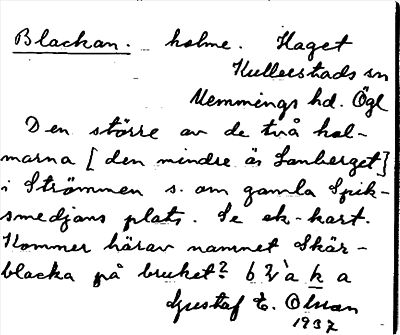 Blackan. holme. Haget
Kullerstads sn
Memmings hd. Ögl
Den större av de två hol-
marna [den mindre är Sanberget]
i Strömmen s. om gamla Spik-
smedjans plats. Se ek-kart.
Kommer härav namnet Skär-
blacka på bruket?
Gustaf E. Olsson
1937